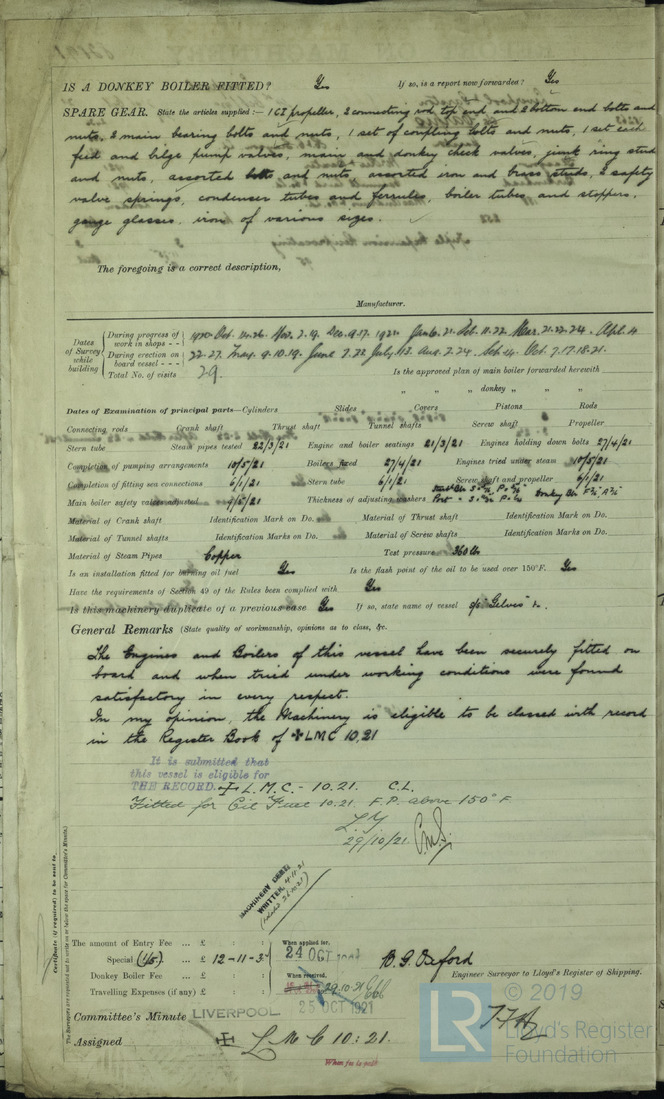 IS A DONKEY BOILER FITTED? Yes If so, is a report now forwarded? Yes
SPARE GEAR. State the articles supplied:— 1 CI propeller, 2 connecting rod top end and 2 bottom end bolts and
nuts, 2 main bearing bolts and nuts, 1 set of coupling bolts and nuts, 1 set each
feed and bilge pump valves, main and donkey check valves, junk ring studs
and nuts, assorted bolts and nuts, assorted iron and brass studs, 2 safety
valve springs, condenser tubes and ferrules, boiler tubes and stoppers,
gauge glasses, iron of various sizes.
The foregoing is a correct description,
Manufacturer.
Dates of Survey while building
During progress of work in shops - - 1920 Oct. 14.26. Nov. 2.19. Dec. 9.17. 1921 Jan 6. 21. Feb. 11.22. Mar. 21.22.24. Apl. 4
During erection on board vessel - - - 22.27. May 9.10.19. June 7.22 July 13. Aug. 2.24. Sep. 14. Oct. 7.17.18.21.
Total No. of visits 29. Is the approved plan of main boiler forwarded herewith
" " donkey " "
Dates of Examination of principal parts—Cylinders Slides Covers Pistons Rods
Connecting rods Crank shaft Thrust shaft Tunnel shafts Screw shaft Propeller
Stern tube Steam pipes tested 22/3/21 Engine and boiler seatings 21/3/21 Engines holding down bolts 27/4/21
Completion of pumping arrangements 10/5/21 Boilers fixed 27/4/21 Engines tried under steam 10/5/21
Completion of fitting sea connections 6/1/21 Stern tube 6/1/21 Screw shaft and propeller 6/1/21
Main boiler safety valves adjusted Thickness of adjusting washers
Material of Crank shaft Identification Mark on Do. Material of Thrust shaft Identification Mark on Do.
Material of Tunnel shafts Identification Marks on Do. Material of Screw shafts Identification Marks on Do.
Material of Steam Pipes Copper Test pressure 360 lbs
Is an installation fitted for burning oil fuel Yes Is the flash point of the oil to be used over 150°F. Yes
Have the requirements of Section 49 of the Rules been complied with Yes
Is this machinery duplicate of a previous case Yes If so, state name of vessel
General Remarks (State quality of workmanship, opinions as to class, &c.
The Engines and Boilers of this vessel have been securely fitted on
board and when tried under working conditions were found
satisfactory in every respect.
In my opinion, the Machinery is eligible to be classed with record
in the Register Book of ✠LMC 10,21
It is submitted that
this vessel is eligible for
THE RECORD. ✠ L.M.C. - 10.21. C.L.
Fitted for Oil Fuel 10.21. F.P. above 150°F
29/10/21.
MACHINERY CERT.
WRITTEN 4.11.21
Certificate (if required) to be sent to
The Surveyors are requested not to write on or below the space for Committee's Minute.
The amount of Entry Fee ... £ : :
Special ... £ 12-11-3
Donkey Boiler Fee ... £ : :
Travelling Expenses (if any) £ : :
When applied for,
24 OCT
When received,
29.10.21
25 OCT 1921
B. G. Oxford
Engineer Surveyor to Lloyd's Register of Shipping.
Committee's Minute LIVERPOOL
Assigned ✠ L M C 10:21.
When fee is paid.
LR © 2019
Lloyd's Register
Foundation